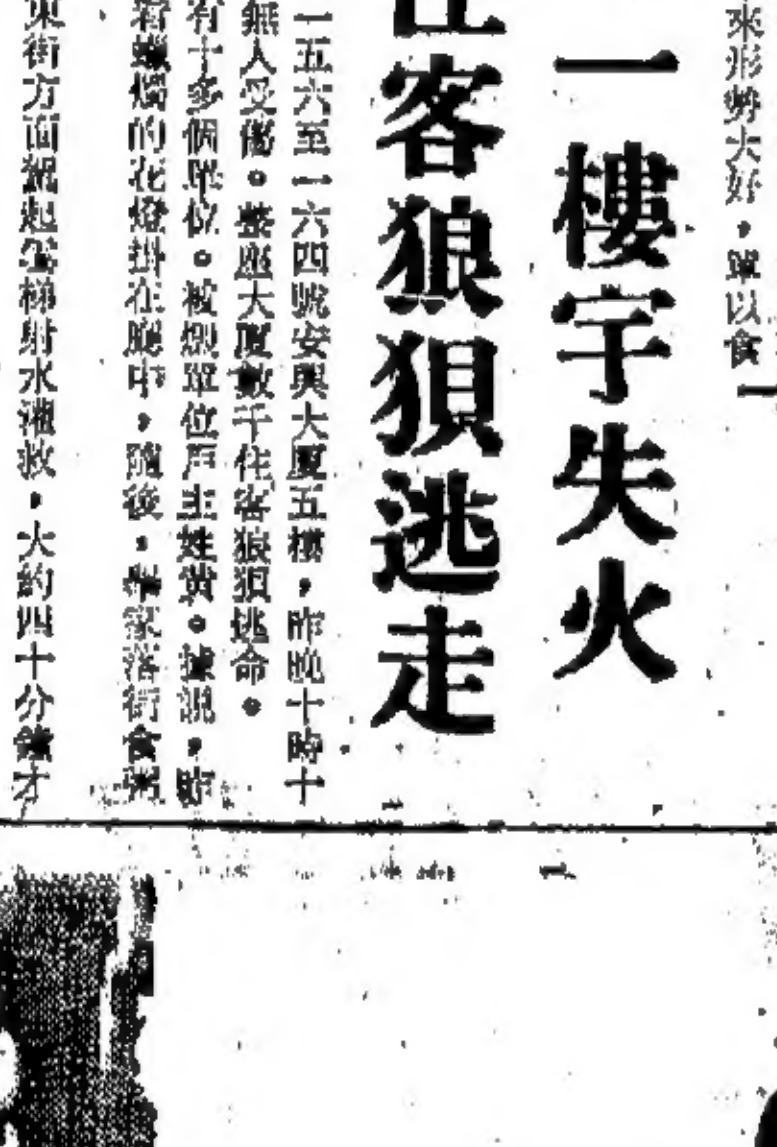 來形勢大好，單以食
一樓宇失火
住客狼狽逃走
一五六至一六四號安興大厦五樓，昨晚十時十
無人受傷。整座大厦數千住客狼狽逃命。
有十多個單位。被燬單位戶主姓黃。據說，昨
着蠟燭的花燈掛在廳中，隨後，舉家落街食粥
東街方面架起雲梯射水灌救，大約四十分鐘才